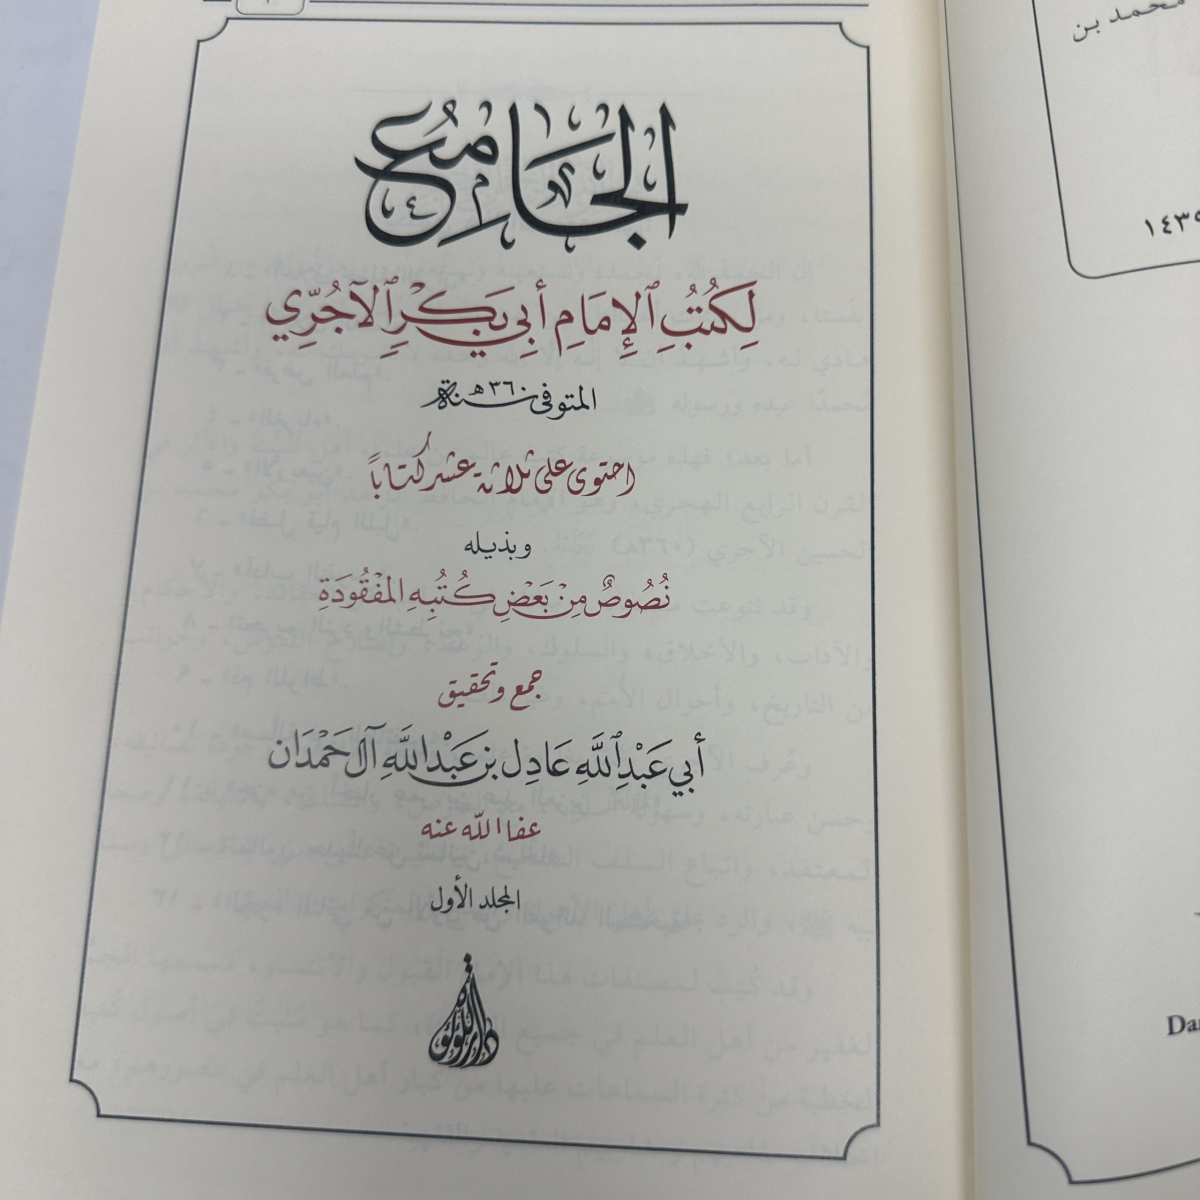 الجَامِعُ
لِكُتُبِ ٱلْإِمَامِ أَبِي بَكْرٍ ٱلْآجُرِّي
المتوفى سنة ٣٦٠هـ
احتوى على ثلاثة عشر كتاباً
وبذيله
نُصُوصٌ مِنْ بَعْضِ كُتُبِهِ المَفْقُودَةِ
جمع وتحقيق
أَبِي عَبْدِ ٱللَّهِ عَادِل بن عَبْدِ اللَّهِ آل حَمْدَان
عفا الله عنه
المجلد الأول
دار اللؤلؤة
محمد بن
١٤٣٩
Dar